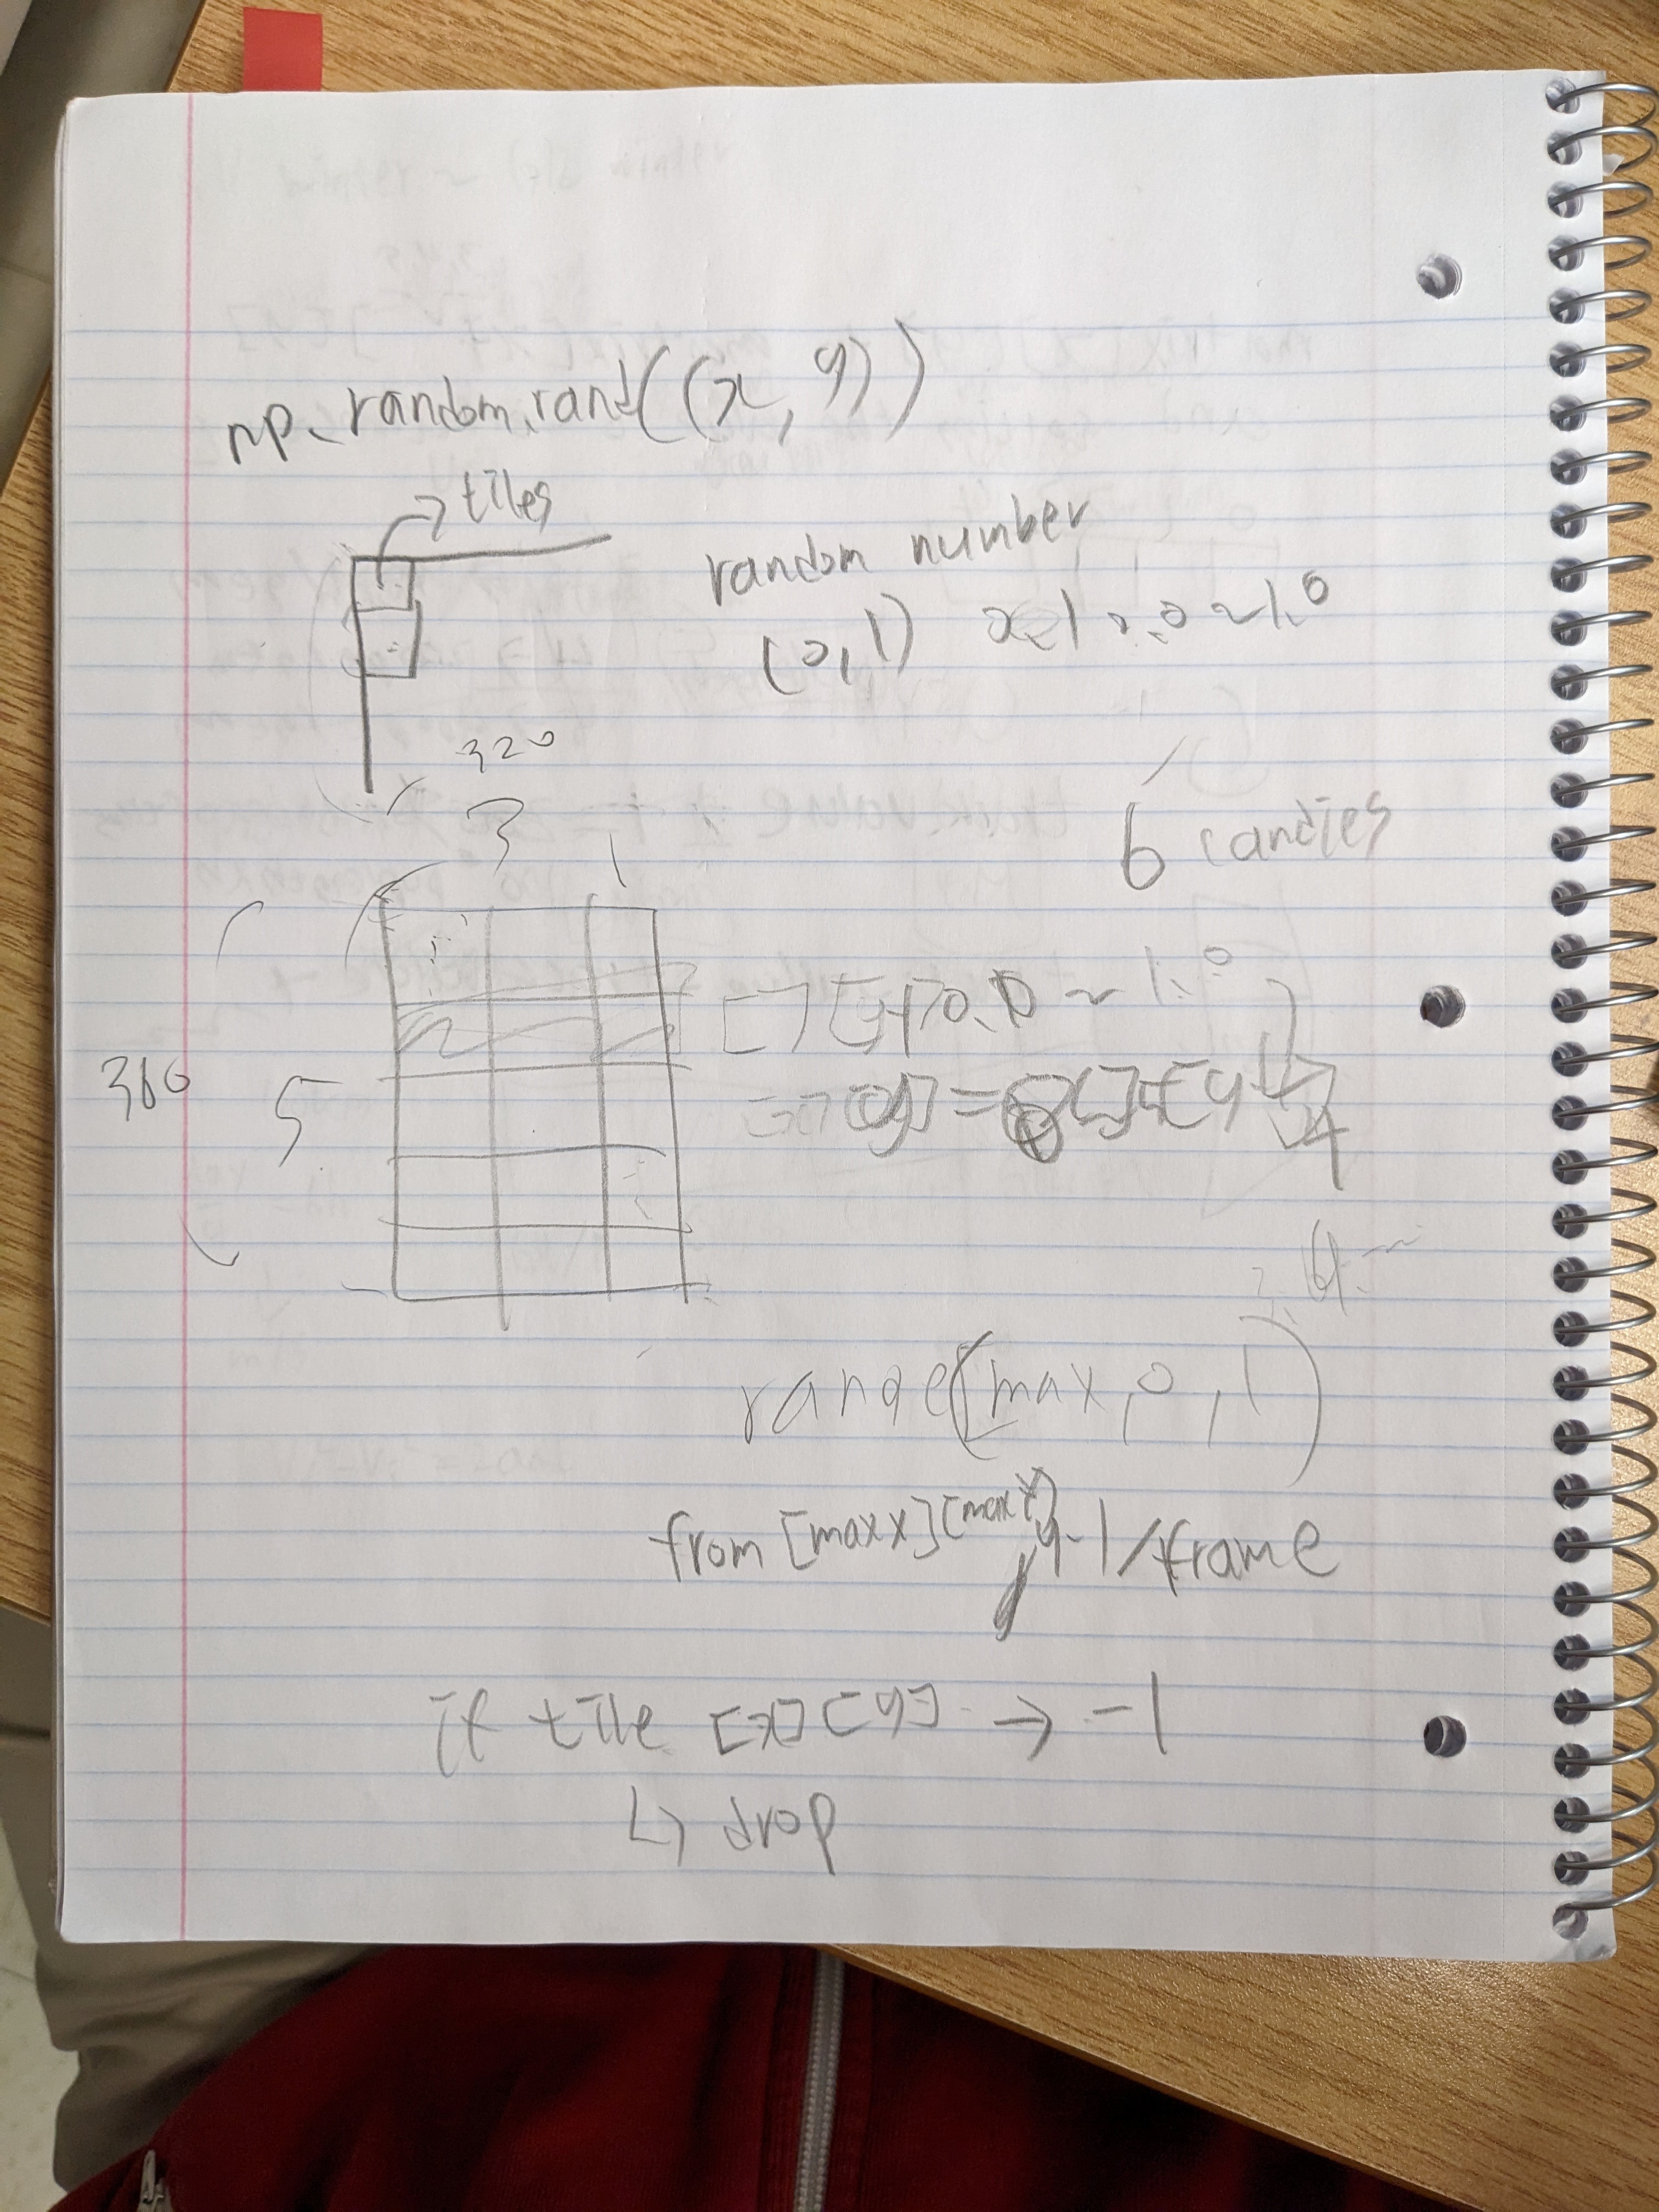 np.random.rand((x, y))
→ tiles
random number
(0,1) 0.0 ~ 1.0
320
3 1
6 candies
360 5
0.0 ~ 1.0
range(max, 0, 1)
from [max x][max y] y-1/frame
if tile [x][y] → -1
↳ drop